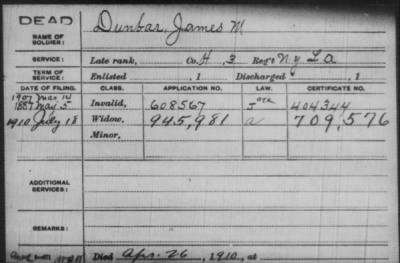 DEAD
NAME OF SOLDIER: Dunbar, James M
SERVICE: Late rank, Co. H, 3 Reg't N.Y. L A
TERM OF SERVICE: Enlisted , 1 Discharged , 1
DATE OF FILING. CLASS. APPLICATION NO. LAW. CERTIFICATE NO.
1887 May 5 Invalid, 608567 404344
1910 July 18 Widow, 945,981 a 709,576
Minor,
ADDITIONAL SERVICES:
REMARKS:
Died Apr. 26, 1910, at